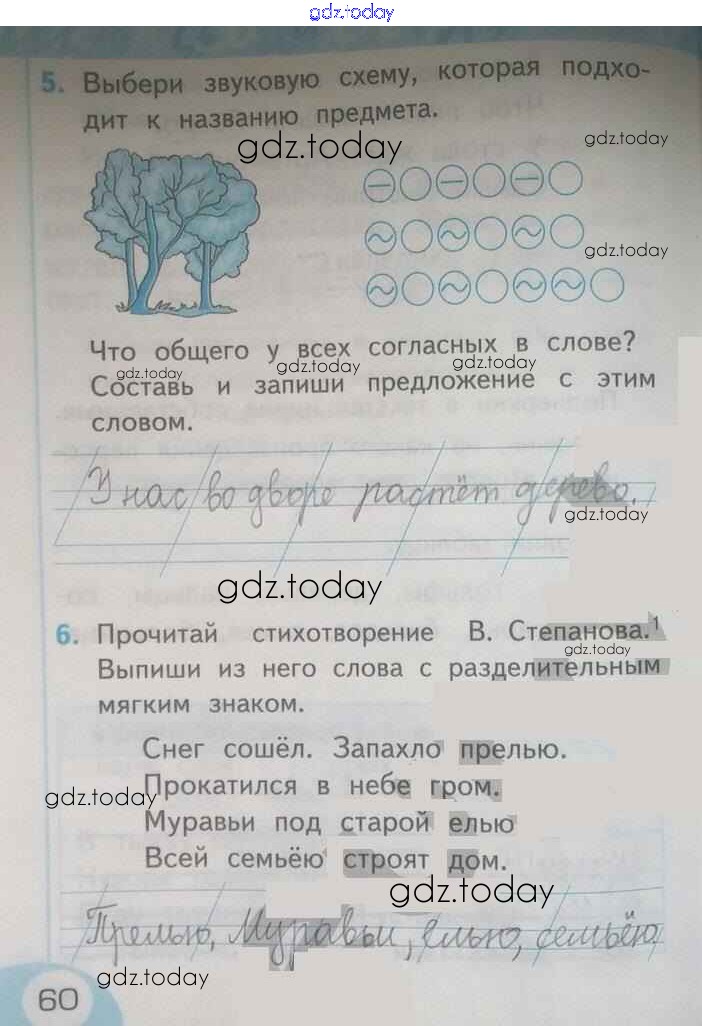 gdz.today
5. Выбери звуковую схему, которая подхо-
дит к названию предмета.
gdz.today
gdz.today
gdz.today
Что общего у всех согласных в слове?
gdz.today gdz.today gdz.today
Составь и запиши предложение с этим
словом.
У нас во дворе растёт дерево.
gdz.today
gdz.today
6. Прочитай стихотворение В. Степанова.¹
gdz.today
Выпиши из него слова с разделительным
мягким знаком.
Снег сошёл. Запахло прелью.
Прокатился в небе гром.
gdz.today
Муравьи под старой елью
Всей семьёю строят дом.
gdz.today
Прелью, Муравьи, елью, семьёю.
gdz.today
60